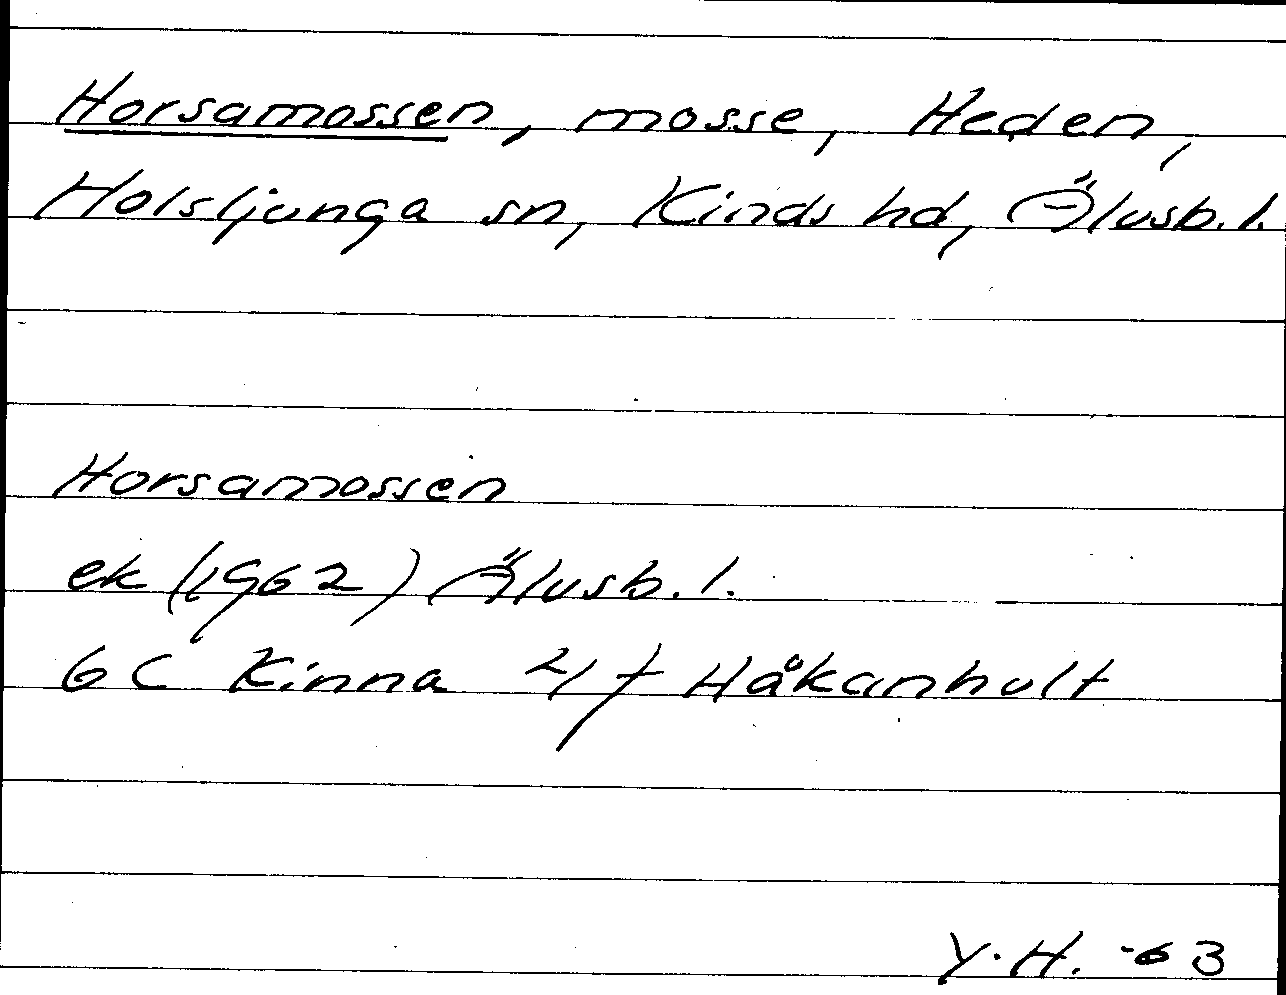 Horsamossen, mosse, Heden,
Holsljunga sn, Kinds hd, Älvsb. l.
Horsamossen
ek (1962) Älvsb. l.
6 C Kinna 2/f Håkanhult
Y. H. -63